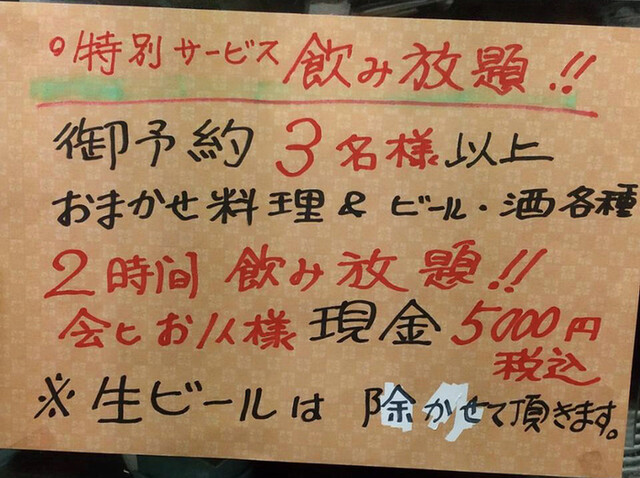 ○特別サービス 飲み放題!!
御予約 3名様以上
おまかせ料理 & ビール・酒各種
2時間 飲み放題!!
お1人様 現金 5000円
税込
※生ビールは 除かせて頂きます。